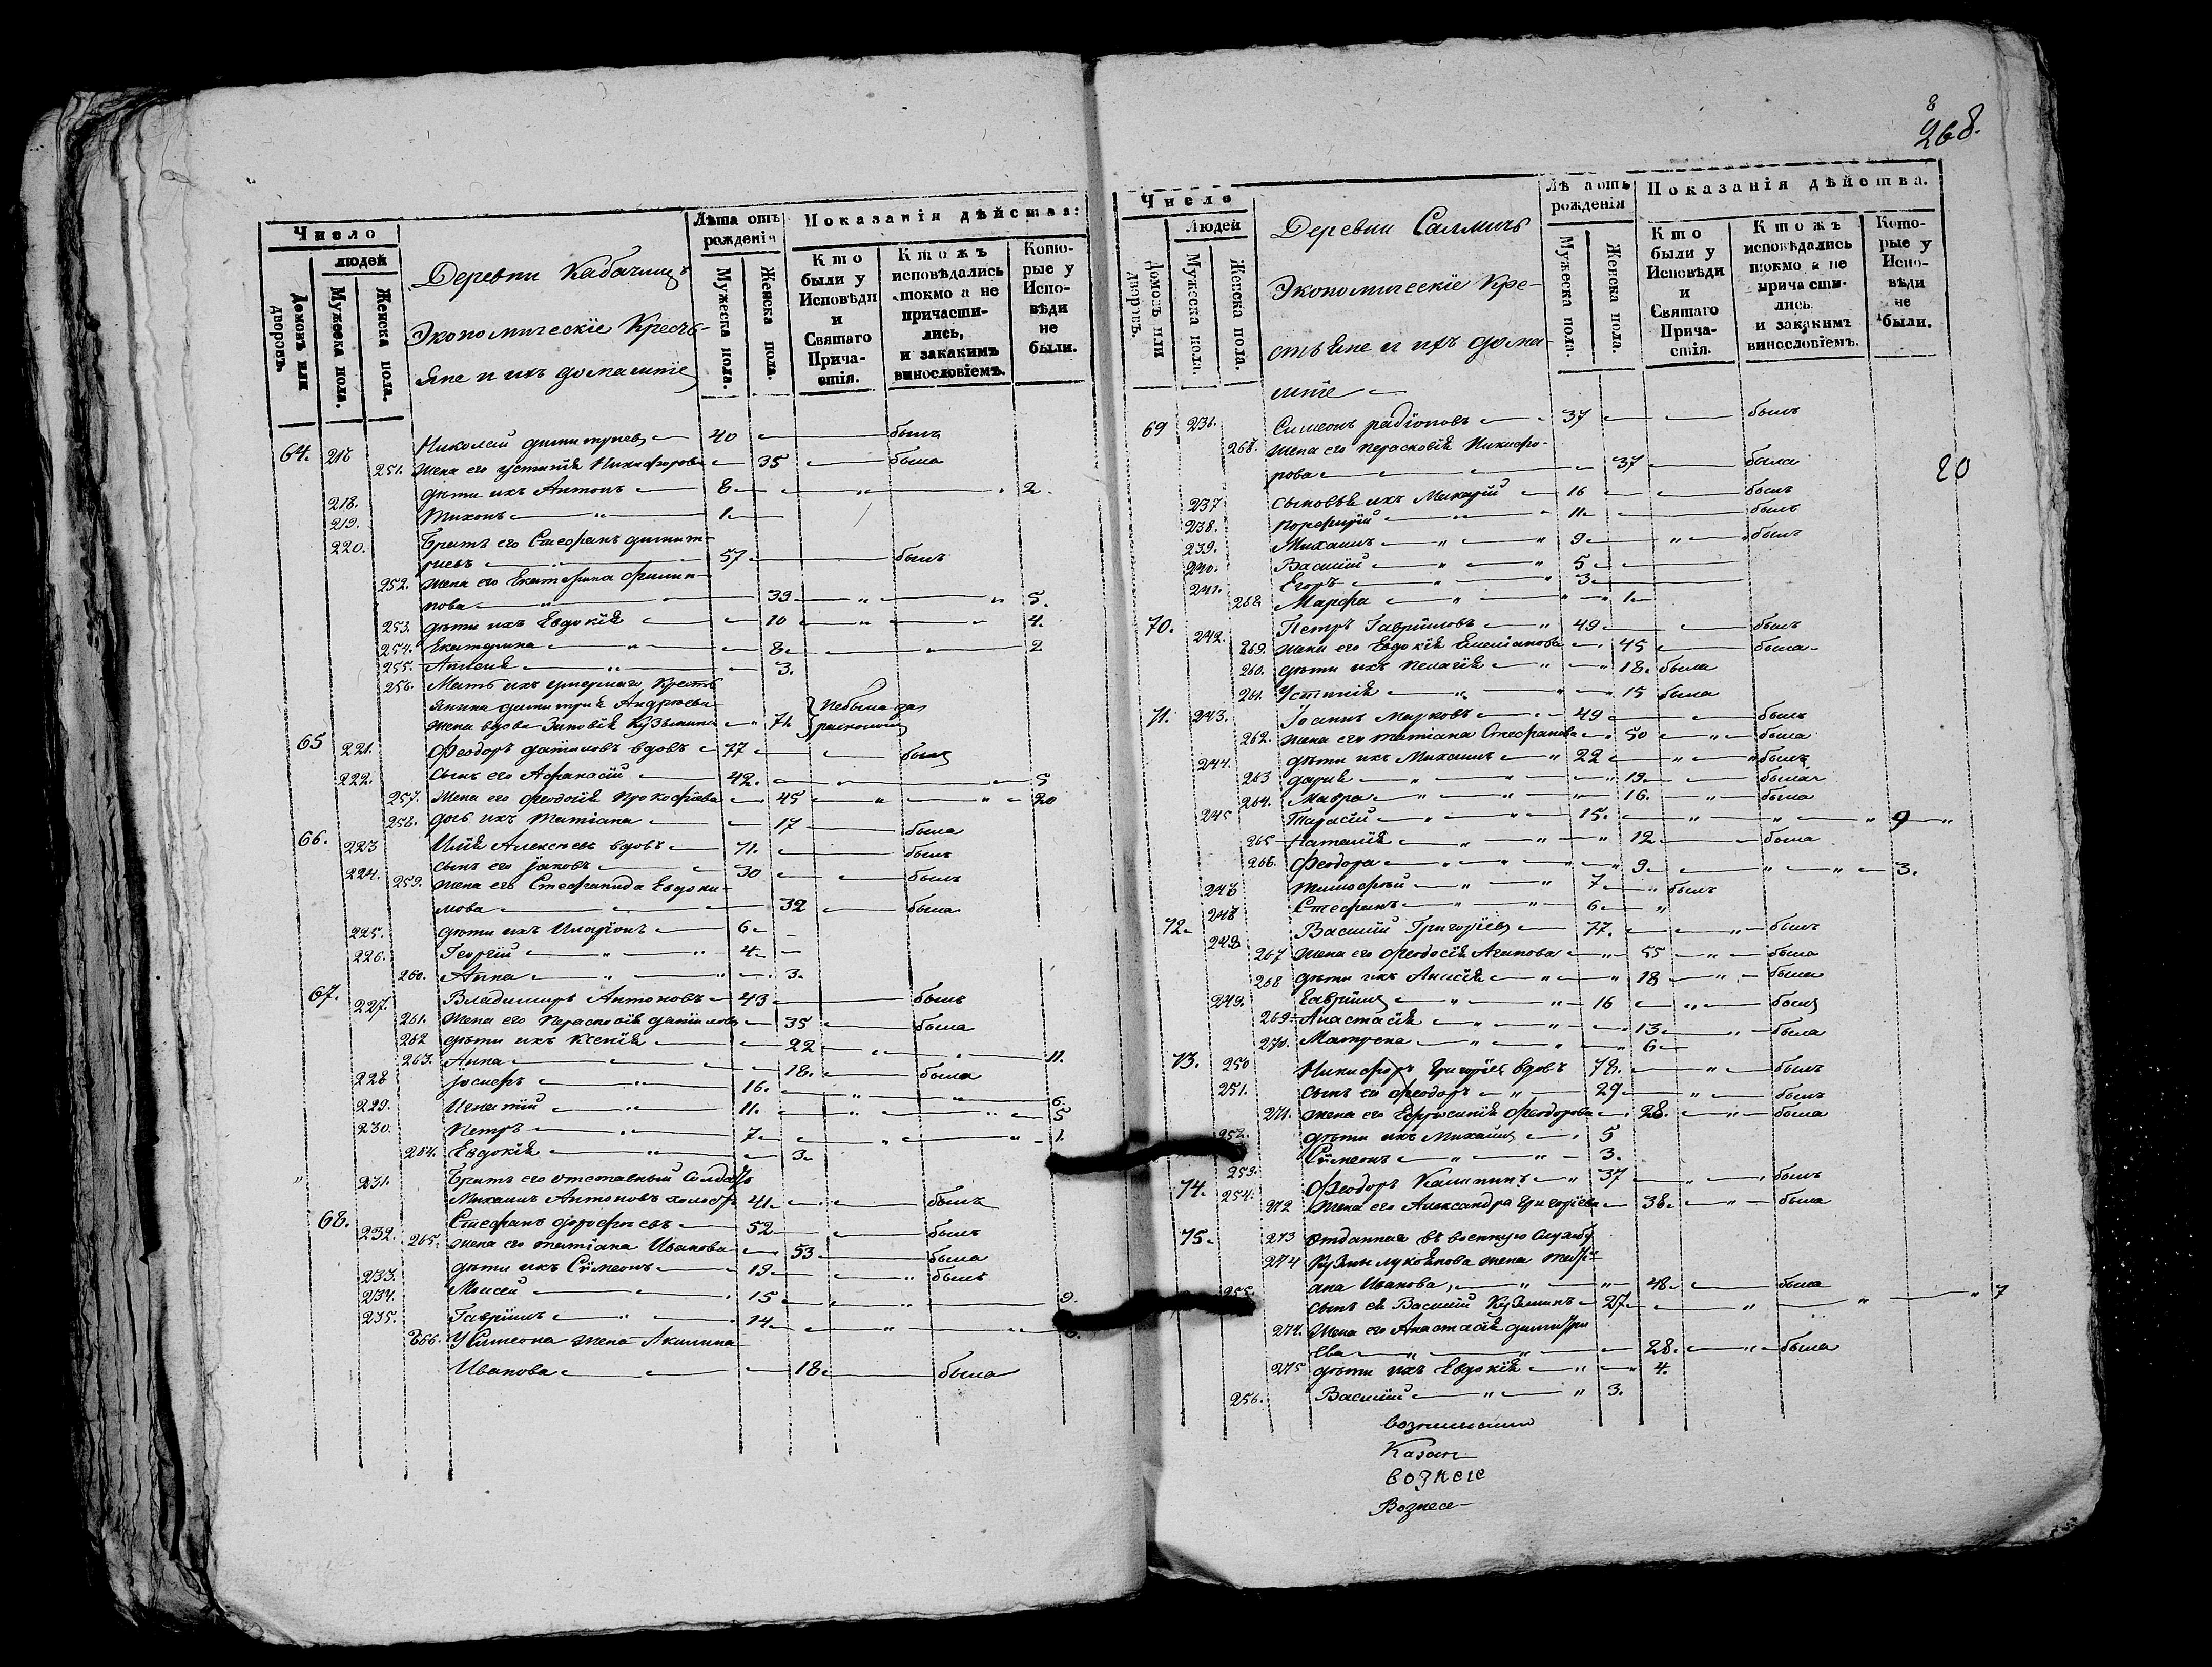 Число
людей
Домовъ или дворовъ.
Мужеска пола.
Женска пола.
Деревни Кабачищъ
Экономическїе Кресть-
яне и ихъ домашнїе
Лѣта отъ рожденія
Мужеска пола.
Женска пола.
Показанія дѣйства:
Кто были у Исповѣди и Святаго Прича- стія.
Ктожъ исповѣдались токмо а не причасти- лись, и закакимъ винословіемъ.
Кото- рые у Испо- вѣди не были.
64. Николай дмитриевъ 40 былъ
251. жена его устинїя Никифорова 35 была
218. дѣти ихъ Антонъ 8 2.
219. Тихонъ 1
220. Братъ его Стефанъ дмит-
риевъ 57 былъ
252. жена его Екатерина филип-
пова 39 5.
253. дѣти ихъ Евдокїя 10 4.
254. Екатерина 8 2
255. 3.
256. Мать ихъ умершаго Кресть
янина дмитрия Андреева
жена вдова Зиновїя Кузьмина 71. Небыла за расколомъ
65 221. Феодоръ данїиловъ вдовъ 77 былъ
222. сынъ его Афанасїй 42. 5
257. жена его Феодосїя Прокофїева 45 20
258. дочь ихъ татїана 17 была
66. 223 Илїя Алексѣевъ вдовъ 71. былъ
224. сынъ его їаковъ 30 былъ
259. жена его Стефанида Евдоки-
мова 32 была
225. дѣти ихъ Иларїонъ 6
226. Георгїй 4
260. Анна 3.
67. 227. Владимиръ Антоновъ 43 былъ
261. жена его Парасковїя данїилова 35 была
262 дѣти ихъ Ксенїя 22 11.
263. Анна 18. была
228 їосифъ 16. 6.
229. Игнатїй 11. 5
230. Петръ 7 1.
264. Евдокїя 3
231. Братъ его отставный Солдатъ
Михаилъ Антоновъ холостъ 41 былъ
68. 232. Стефанъ дорофѣевъ 52 былъ
265. жена его татїана Иванова 53 была
233. дѣти ихъ Сѷмеонъ 19 былъ
234. Моисей 15 9.
235. Гаврїилъ 14
266. У Симеона жена Акилина
Иванова 18 была
8
268.
Число
Людей
Домовъ или дворовъ.
Мужеска пола.
Женска пола.
Деревни
Экономическїе Кре-
стьяне и ихъ дома-
шнїе
Лѣта отъ рожденія
Мужеска пола.
Женска пола.
Показанія дѣйства.
Кто были у Исповѣди и Святаго Прича- стія.
Ктожъ исповѣдались токмо а не причасти- лись. и закакимъ винословіемъ.
Кото- рые у Испо- вѣди не были.
69 236. Симеонъ радїоновъ 37 былъ
жена его Парасковїя Никифо-
рова 37 была
20
237 сыновья ихъ Макарїй 16 былъ
238. порфирїй 11. былъ
239. Михаилъ 9 былъ
240. Василїй 5
241. Егоръ 3
Марфа 1
70. 242. Петръ Гаврїиловъ 49 былъ
жена его Евдокїя Емелїанова 45 была
260. дѣти ихъ Пелагїя 18. была
261. Устинїя 15 была
71. 243. Їоаннъ Марковъ 49 былъ
262. жена его татїана Стефанова 50 была
244. дѣти ихъ Михаилъ 22 былъ
263 дарїя 19 была
264. Мавра 16. была
245 Тарасїй 15. 9
265 Наталїя 12 была
266. Феодора 9 3.
246 тимофей 7 былъ
Стефанъ 6
72. Василїй Григорїевъ 77. былъ
267 жена его Феодосїя Агапова 55 была
268 дѣти ихъ Анисїя 18 была
249. Гаврїилъ 16 былъ
269 Анастасїя 13 была
270. Матрена 6
73. 250 Никифоръ Григорїевъ вдовъ 78. былъ
251. сынъ его Феодоръ 29 былъ
271. жена его Ефросинїя Феодорова 28. была
252. дѣти ихъ Михаилъ 5
253. Сѷмеонъ 3.
74. 254. Феодоръ Калининъ 37 былъ
272 жена его Александра Григорїева 38. была
75. 273 отданнаго въ военную службу
274 Кузмы лукоянова жена татї-
ана Иванова, 48 была
255. сынъ ея Василїй Кузминъ 27 7
274. жена его Анастасїя димитри
ева 28. была
275 дѣти ихъ Евдокїя 4.
256. Василїй 3.
Казан
вознесе
Вознесе-